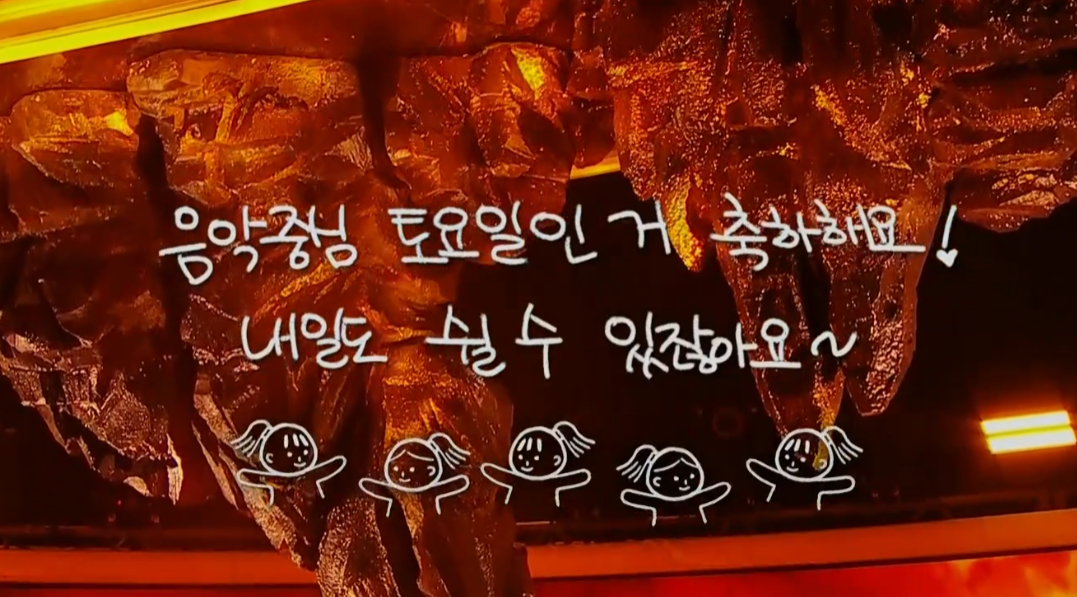 음악중심 토요일인 거 축하해요!
내일도 쉴 수 있잖아요~